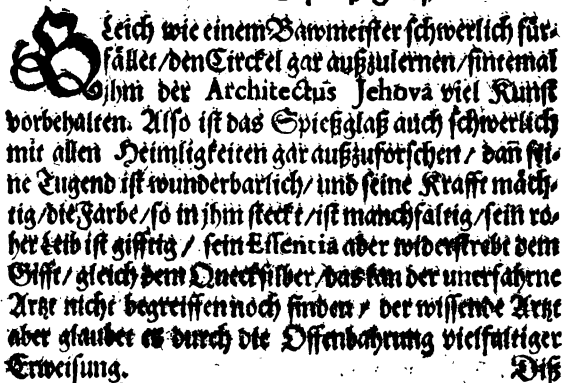 Gleich wie einem Bawmeister schwerlich für-
fället/den Circkel gar außzulernen/sintemal
jhm der Architectus Jehova viel Kunst
vorbehalten. Also ist das Spießglaß auch schwerlich
mit allen Heimligkeiten gar außzuforschen/ dañ sei-
ne Tugend ist wunderbarlich/ und seine Krafft mäch-
tig/die Farbe/so in jhm steckt/ist manchfaltig/sein ro-
her Leib ist gifftig / sein Essentia aber widerstrebt dem
Gifft/ gleich dem Quecksilber/das kan der unerfahrne
Artzt nicht begreiffen noch finden / der wissende Artzt
aber glaubet es durch die Offenbahrung vielfältiger
Erweisung.
Diß